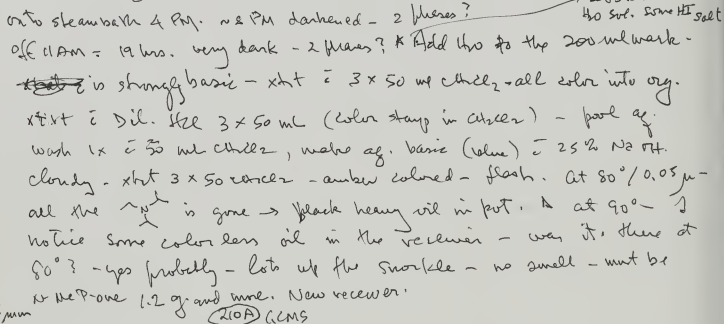 H2O sol. some HI salt
onto steambath 4 PM. ~ 8 PM darkened – 2 phases?
off 11 AM = 19 hrs. very dark – 2 phases? * Add H2O to the 200 ml mark.
is strongly basic – xtrt c̄ 3 x 50 ml CH2Cl2 – all color into org.
xtrt c̄ Dil. HCl 3 x 50 mL (color stays in CH2Cl2) – pool aq.
wash 1x c̄ 50 ml CH2Cl2, make aq. basic (blue) c̄ 25% NaOH.
cloudy – xtrt 3 x 50 CH2Cl2 – amber colored – flash. at 80°/0.05 µ –
all the N is gone → black heavy oil in pot. Δ at 90° – I
notice some colorless oil in the receiver – was it there at
80°? – yes probably – lots up the snorkle – no smell – must be
N Me P-one 1.2 g. and more. New receiver.
210A GCMS